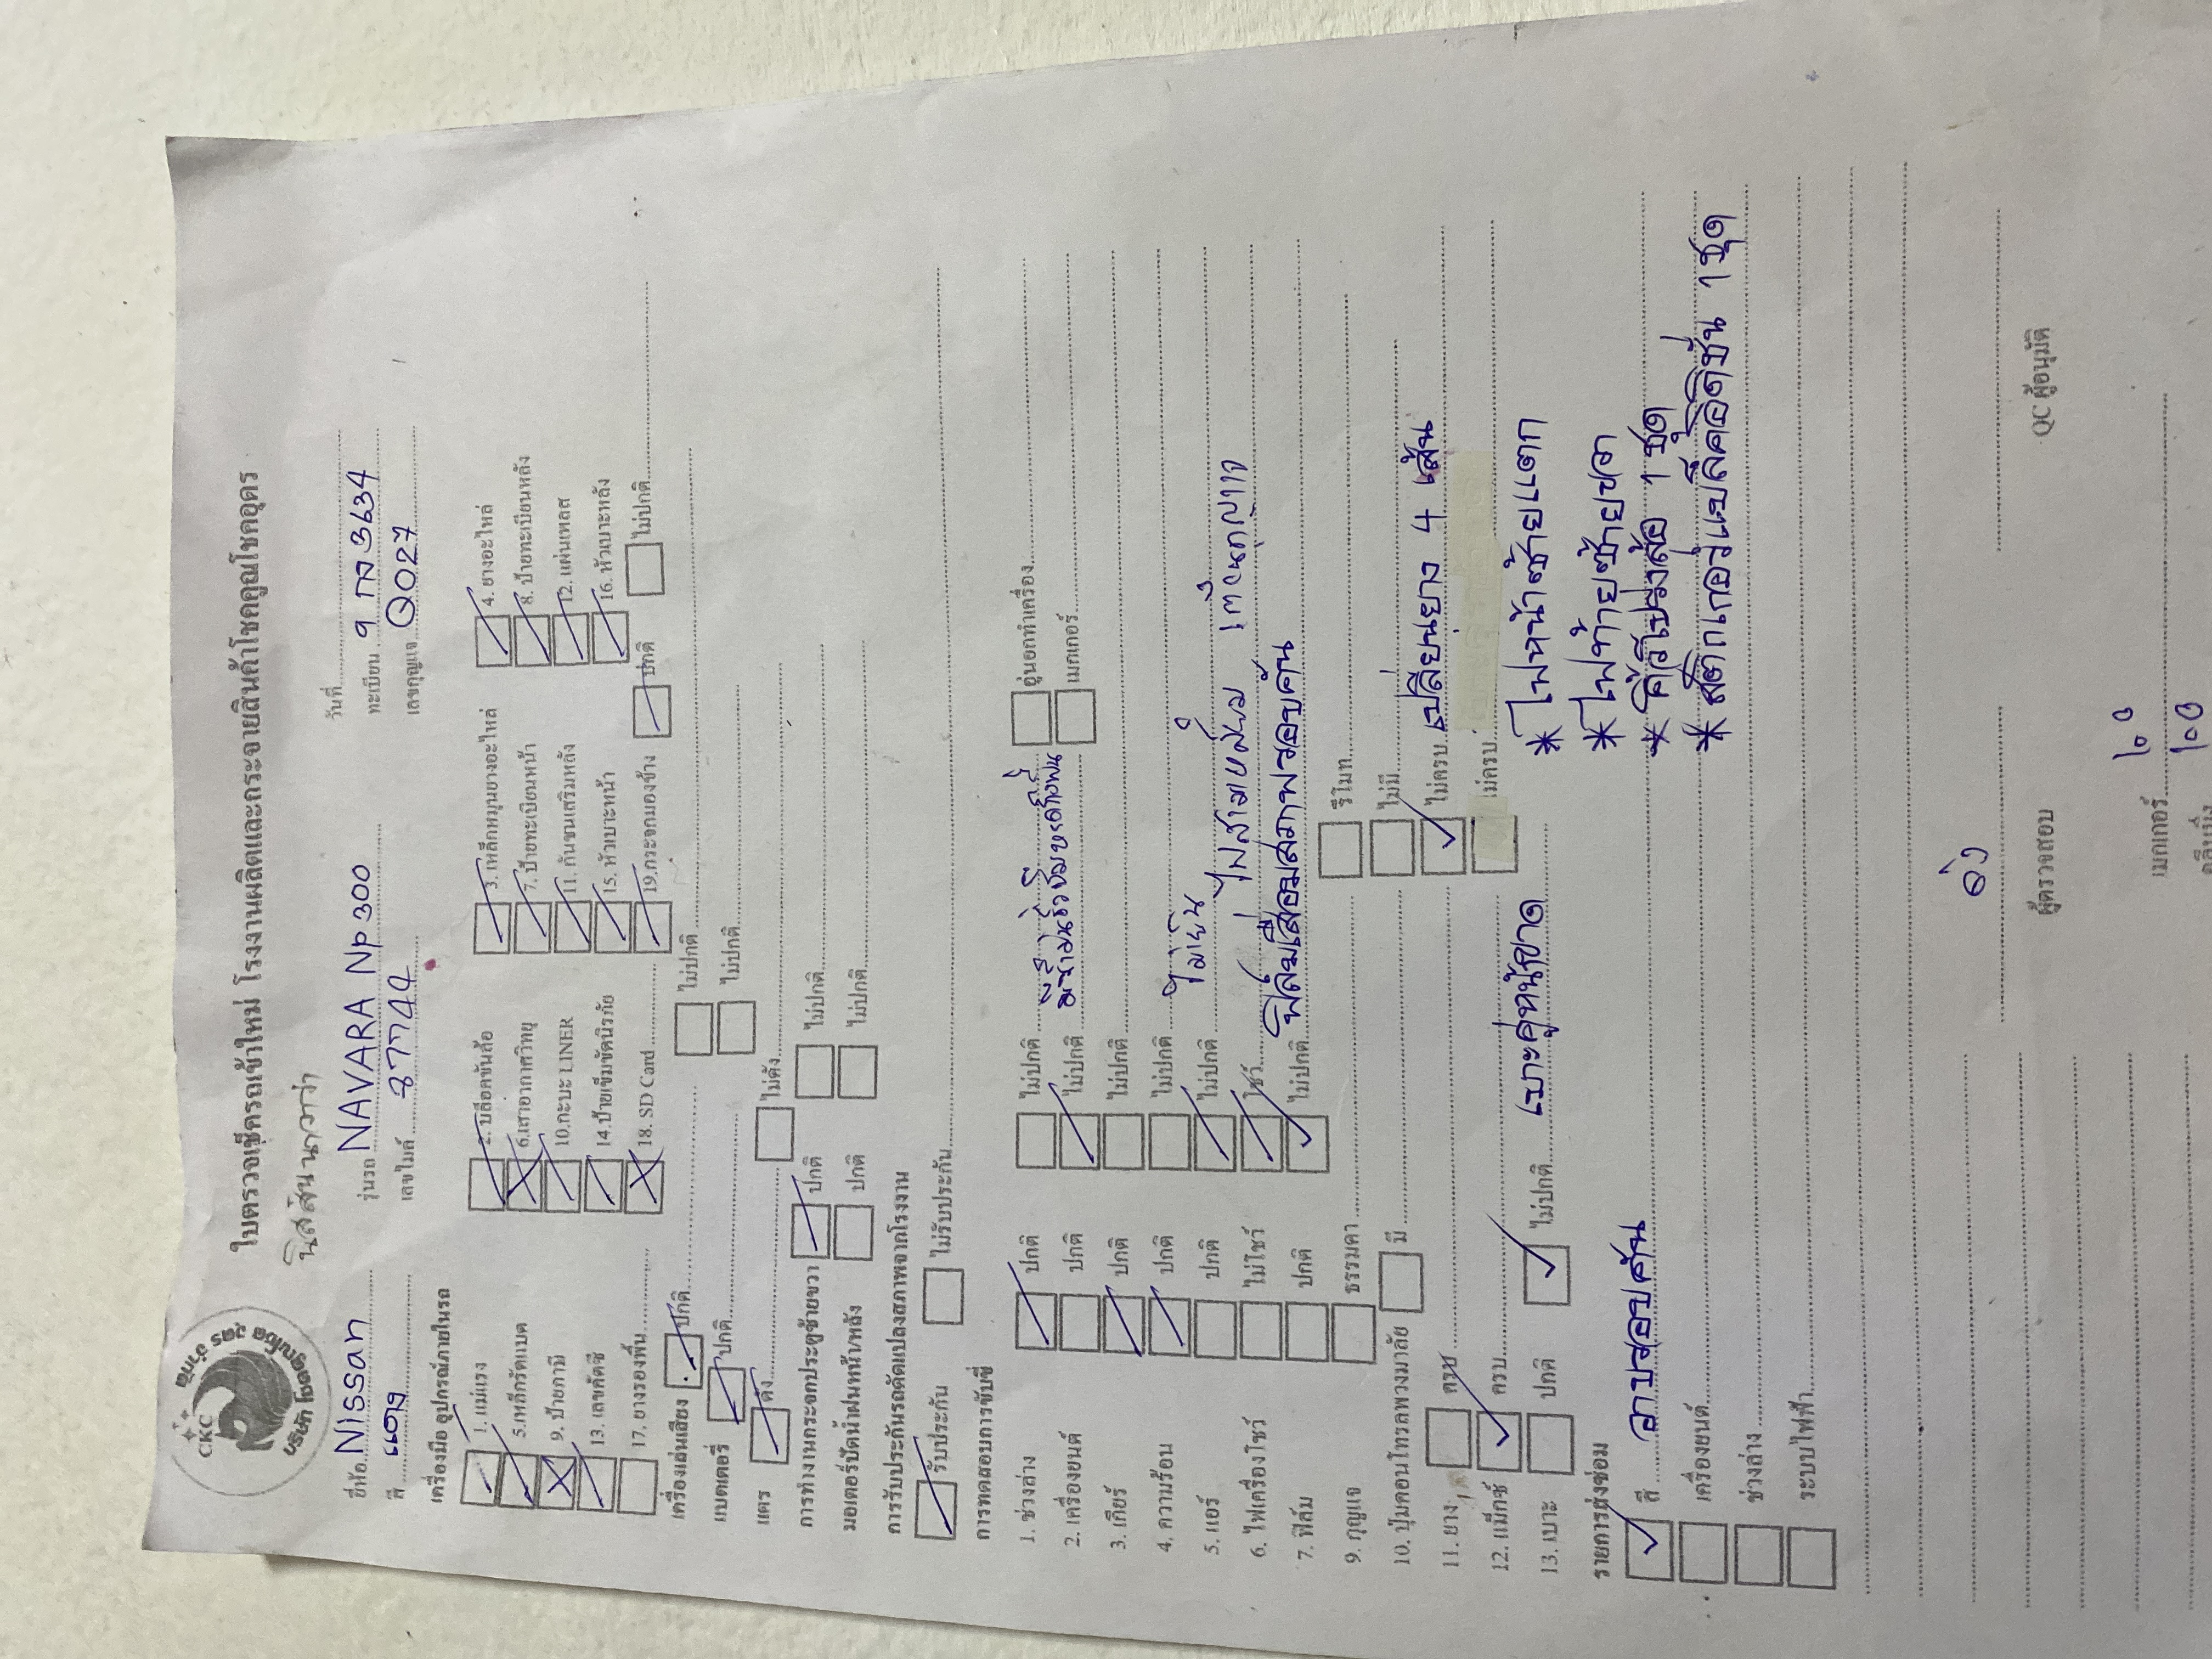 CKC
บริษัท โชคคูณโชค อุดร จำกัด
ใบตรวจเช็ครถเข้าใหม่ โรงงานผลิตและกระจายสินค้าโชคคูณโชคอุดร
นิสสัน นาวาร่า
วันที่
ยี่ห้อ Nissan รุ่นรถ NAVARA Np 300 ทะเบียน 9 กว 3634
สี แดง เลขไมล์ เลขกุญแจ Q027
เครื่องมือ อุปกรณ์ภายในรถ
1. แม่แรง 2. บล็อคขันล้อ 3. เหล็กหมุนยางอะไหล่ 4. ยางอะไหล่
5.เหล็กรัดแบต 6.เสาอากาศวิทยุ 7. ป้ายทะเบียนหน้า 8. ป้ายทะเบียนหลัง
9. ป้ายภาษี 10.กะบะ LINER 11. กันชนเสริมหลัง 12. แผ่นเพลส
13. เลขคัดซี 14.ป้ายเข็มขัดนิรภัย 15. หัวเบาะหน้า 16. หัวเบาะหลัง
17. ยางรองพื้น 18. SD Card 19.กระจกมองข้าง ปกติ ไม่ปกติ
เครื่องเล่นเสียง ปกติ ไม่ปกติ
แบตเตอรี่ ปกติ ไม่ปกติ
แตร ดัง ไม่ดัง
การทำงานกระจกประตูซ้ายขวา ปกติ ไม่ปกติ
มอเตอร์ปัดน้ำฝนหน้า/หลัง ปกติ ไม่ปกติ
การรับประกันรถดัดแปลงสภาพจากโรงงาน
รับประกัน ไม่รับประกัน
การทดสอบการขับขี่
1. ช่วงล่าง ปกติ ไม่ปกติ อู่นอกทำเครื่อง
2. เครื่องยนต์ ปกติ ไม่ปกติ เมกเกอร์
3. เกียร์ ปกติ ไม่ปกติ
4. ความร้อน ปกติ ไม่ปกติ
5. แอร์ ปกติ ไม่ปกติ ไม่เย็น
6. ไฟเครื่องโชว์ ไม่โชว์ โชว์ ไฟสามเหลี่ยม
7. ฟิล์ม ปกติ ไม่ปกติ ฟิล์มเสื่อมสภาพรอบคัน
9. กุญแจ ธรรมดา รีโมท
10. ปุ่มคอนโทรลพวงมาลัย มี ไม่มี
11. ยาง ครบ ไม่ครบ เปลี่ยนยาง 4 เส้น
12. แม็กซ์ ครบ ไม่ครบ
13. เบาะ ปกติ ไม่ปกติ เบาะคู่หน้าขาด
* ไฟหน้าซ้ายแตก
รายการส่งซ่อม
* ไฟท้ายซ้ายขวา
สี อาบรอบคัน * คิ้วโป่งล้อ 1 ชุด
เครื่องยนต์ * สติกเกอร์แบล็คอิดิชั่น 1 ชุด
ช่วงล่าง
ระบบไฟฟ้า
ผู้ตรวจสอบ QC ผู้อนุมัติ
เมกเกอร์